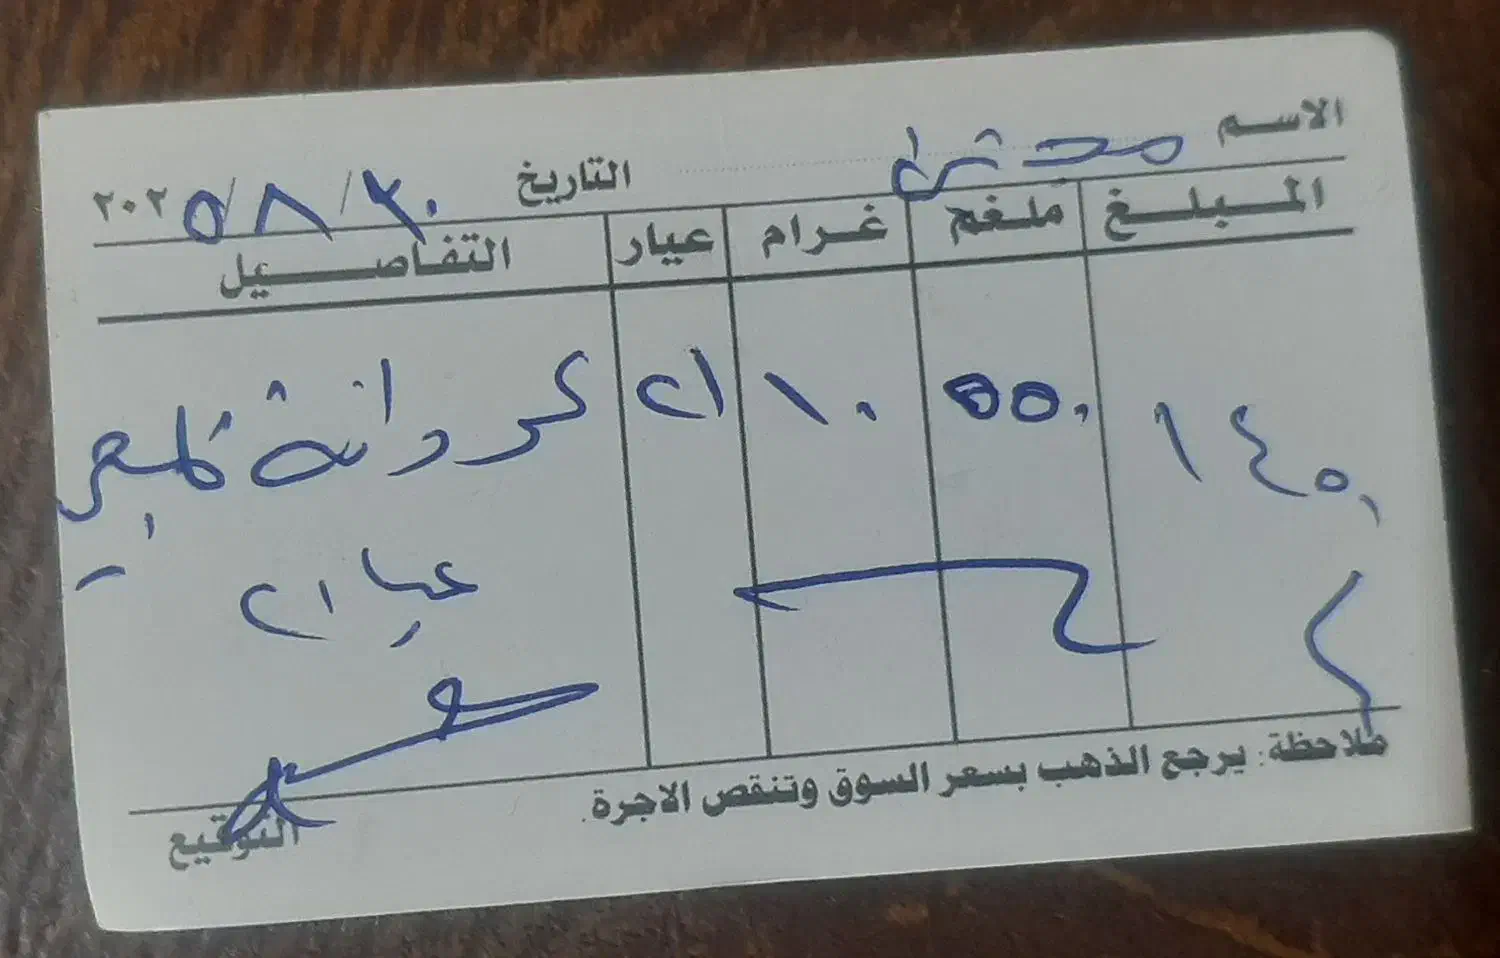 الاسم
التاريخ ٢٠ / ٨ / ٢٠٢٥
المبلغ ملغم غرام عيار التفاصيل
١٤٥٠ ٥٥٠ ١٠ ٢١ كردانة
عيار ٢١
ملاحظة: يرجع الذهب بسعر السوق وتنقص الاجرة.
التوقيع